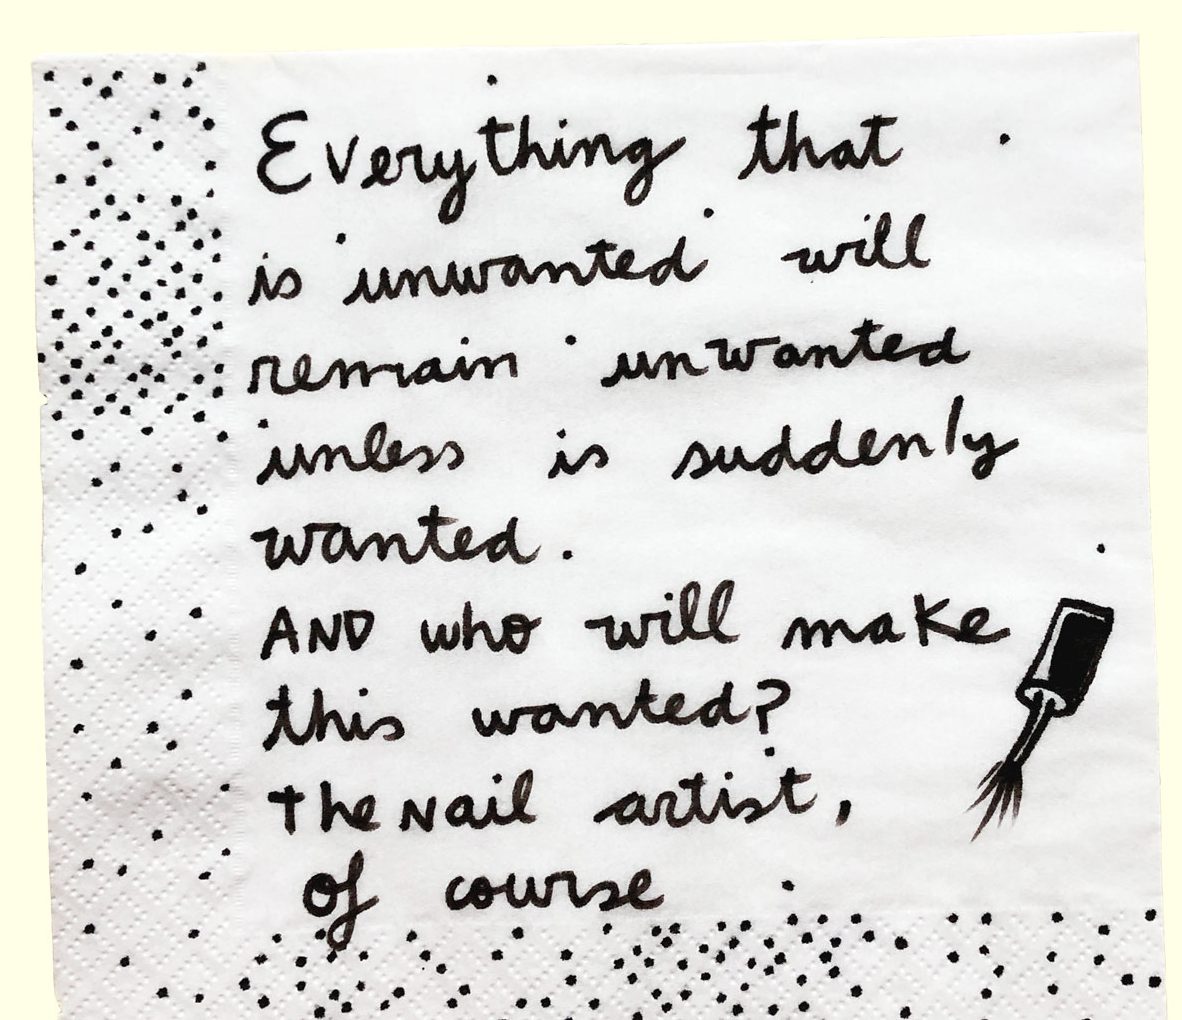 Everything that
is unwanted will
remain unwanted
unless is suddenly
wanted.
AND who will make
this wanted?
The Nail artist,
of course